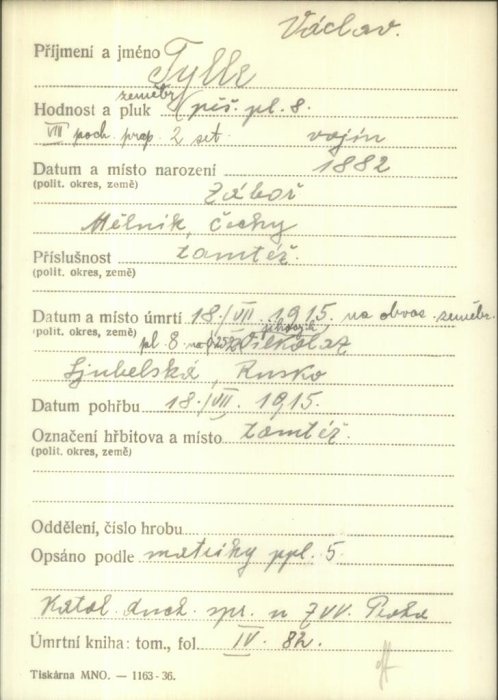 Václav.
Příjmení a jméno Tylle
zeměbr.
Hodnost a pluk pěš. pl. 8.
VIII poch. prap. 2 set. vojín
Datum a místo narození 1882
(polit. okres, země) Záboř
Mělník, Čechy
Příslušnost tamtéž.
(polit. okres, země)
Datum a místo úmrtí 18./VII. 1915. na obvaz. zeměbr.
(polit. okres, země) pl. 8 Wilkolaz
Ljubelska, Rusko
Datum pohřbu 18./VII. 1915.
Označení hřbitova a místo tamtéž.
(polit. okres, země)
Oddělení, číslo hrobu
Opsáno podle matriky ppl. 5.
Katol. duch. spr. u ZVV. Praha
Úmrtní kniha: tom., fol. IV. 82.
Tiskárna MNO. — 1163-36.